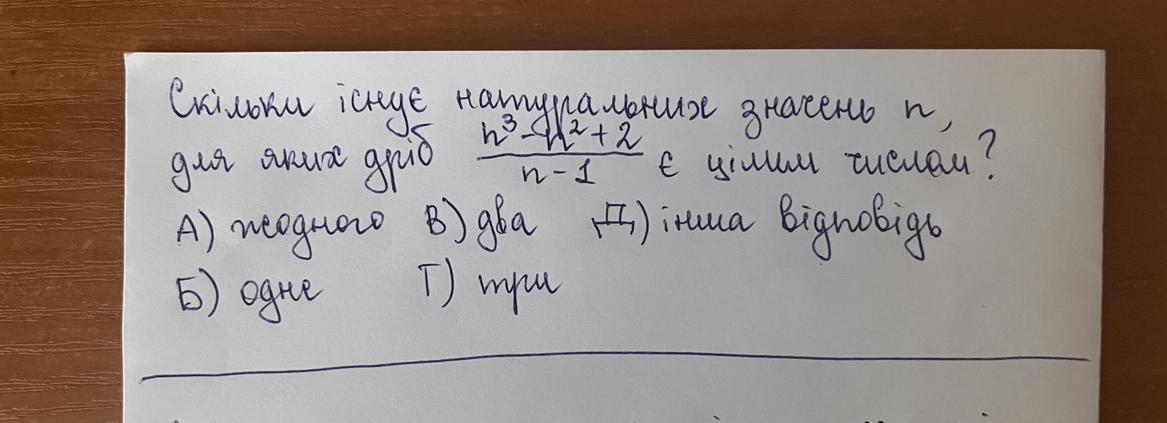 Скільки існує натуральних значень n,
для яких дріб (n³-n²+2)/(n-1) є цілим числом?
А) жодного В) два Д) інша відповідь
Б) одне Г) три